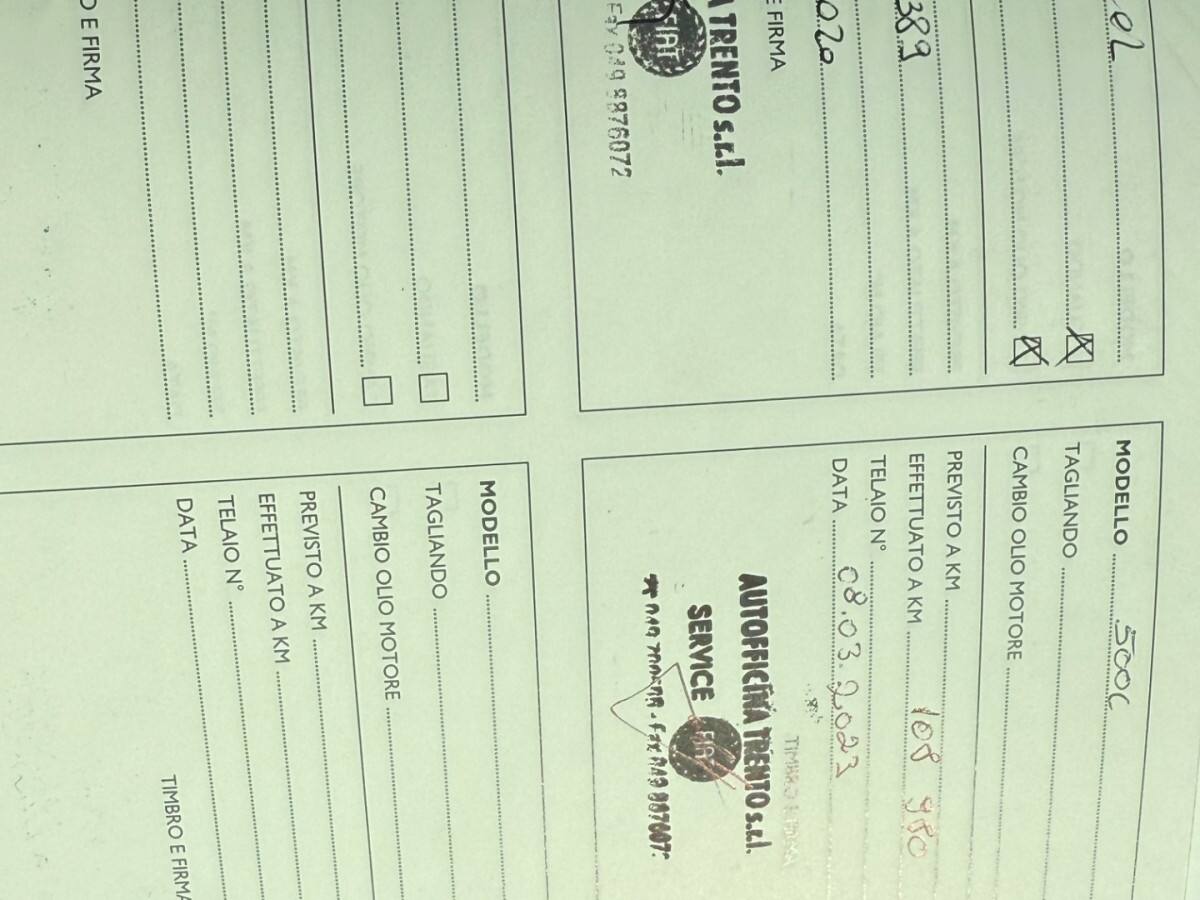 el
389
020
E FIRMA
A TRENTO s.r.l.
FIAT
Fax 049 9876072
MODELLO 500C
TAGLIANDO
CAMBIO OLIO MOTORE
PREVISTO A KM
EFFETTUATO A KM 108 980
TELAIO N°
DATA 08.03.2023
TIMBRO E FIRMA
AUTOFFICINA TRENTO s.r.l.
SERVICE FIAT
Fax 049 987607
O E FIRMA
MODELLO
TAGLIANDO
CAMBIO OLIO MOTORE
PREVISTO A KM
EFFETTUATO A KM
TELAIO N°
DATA
TIMBRO E FIRMA